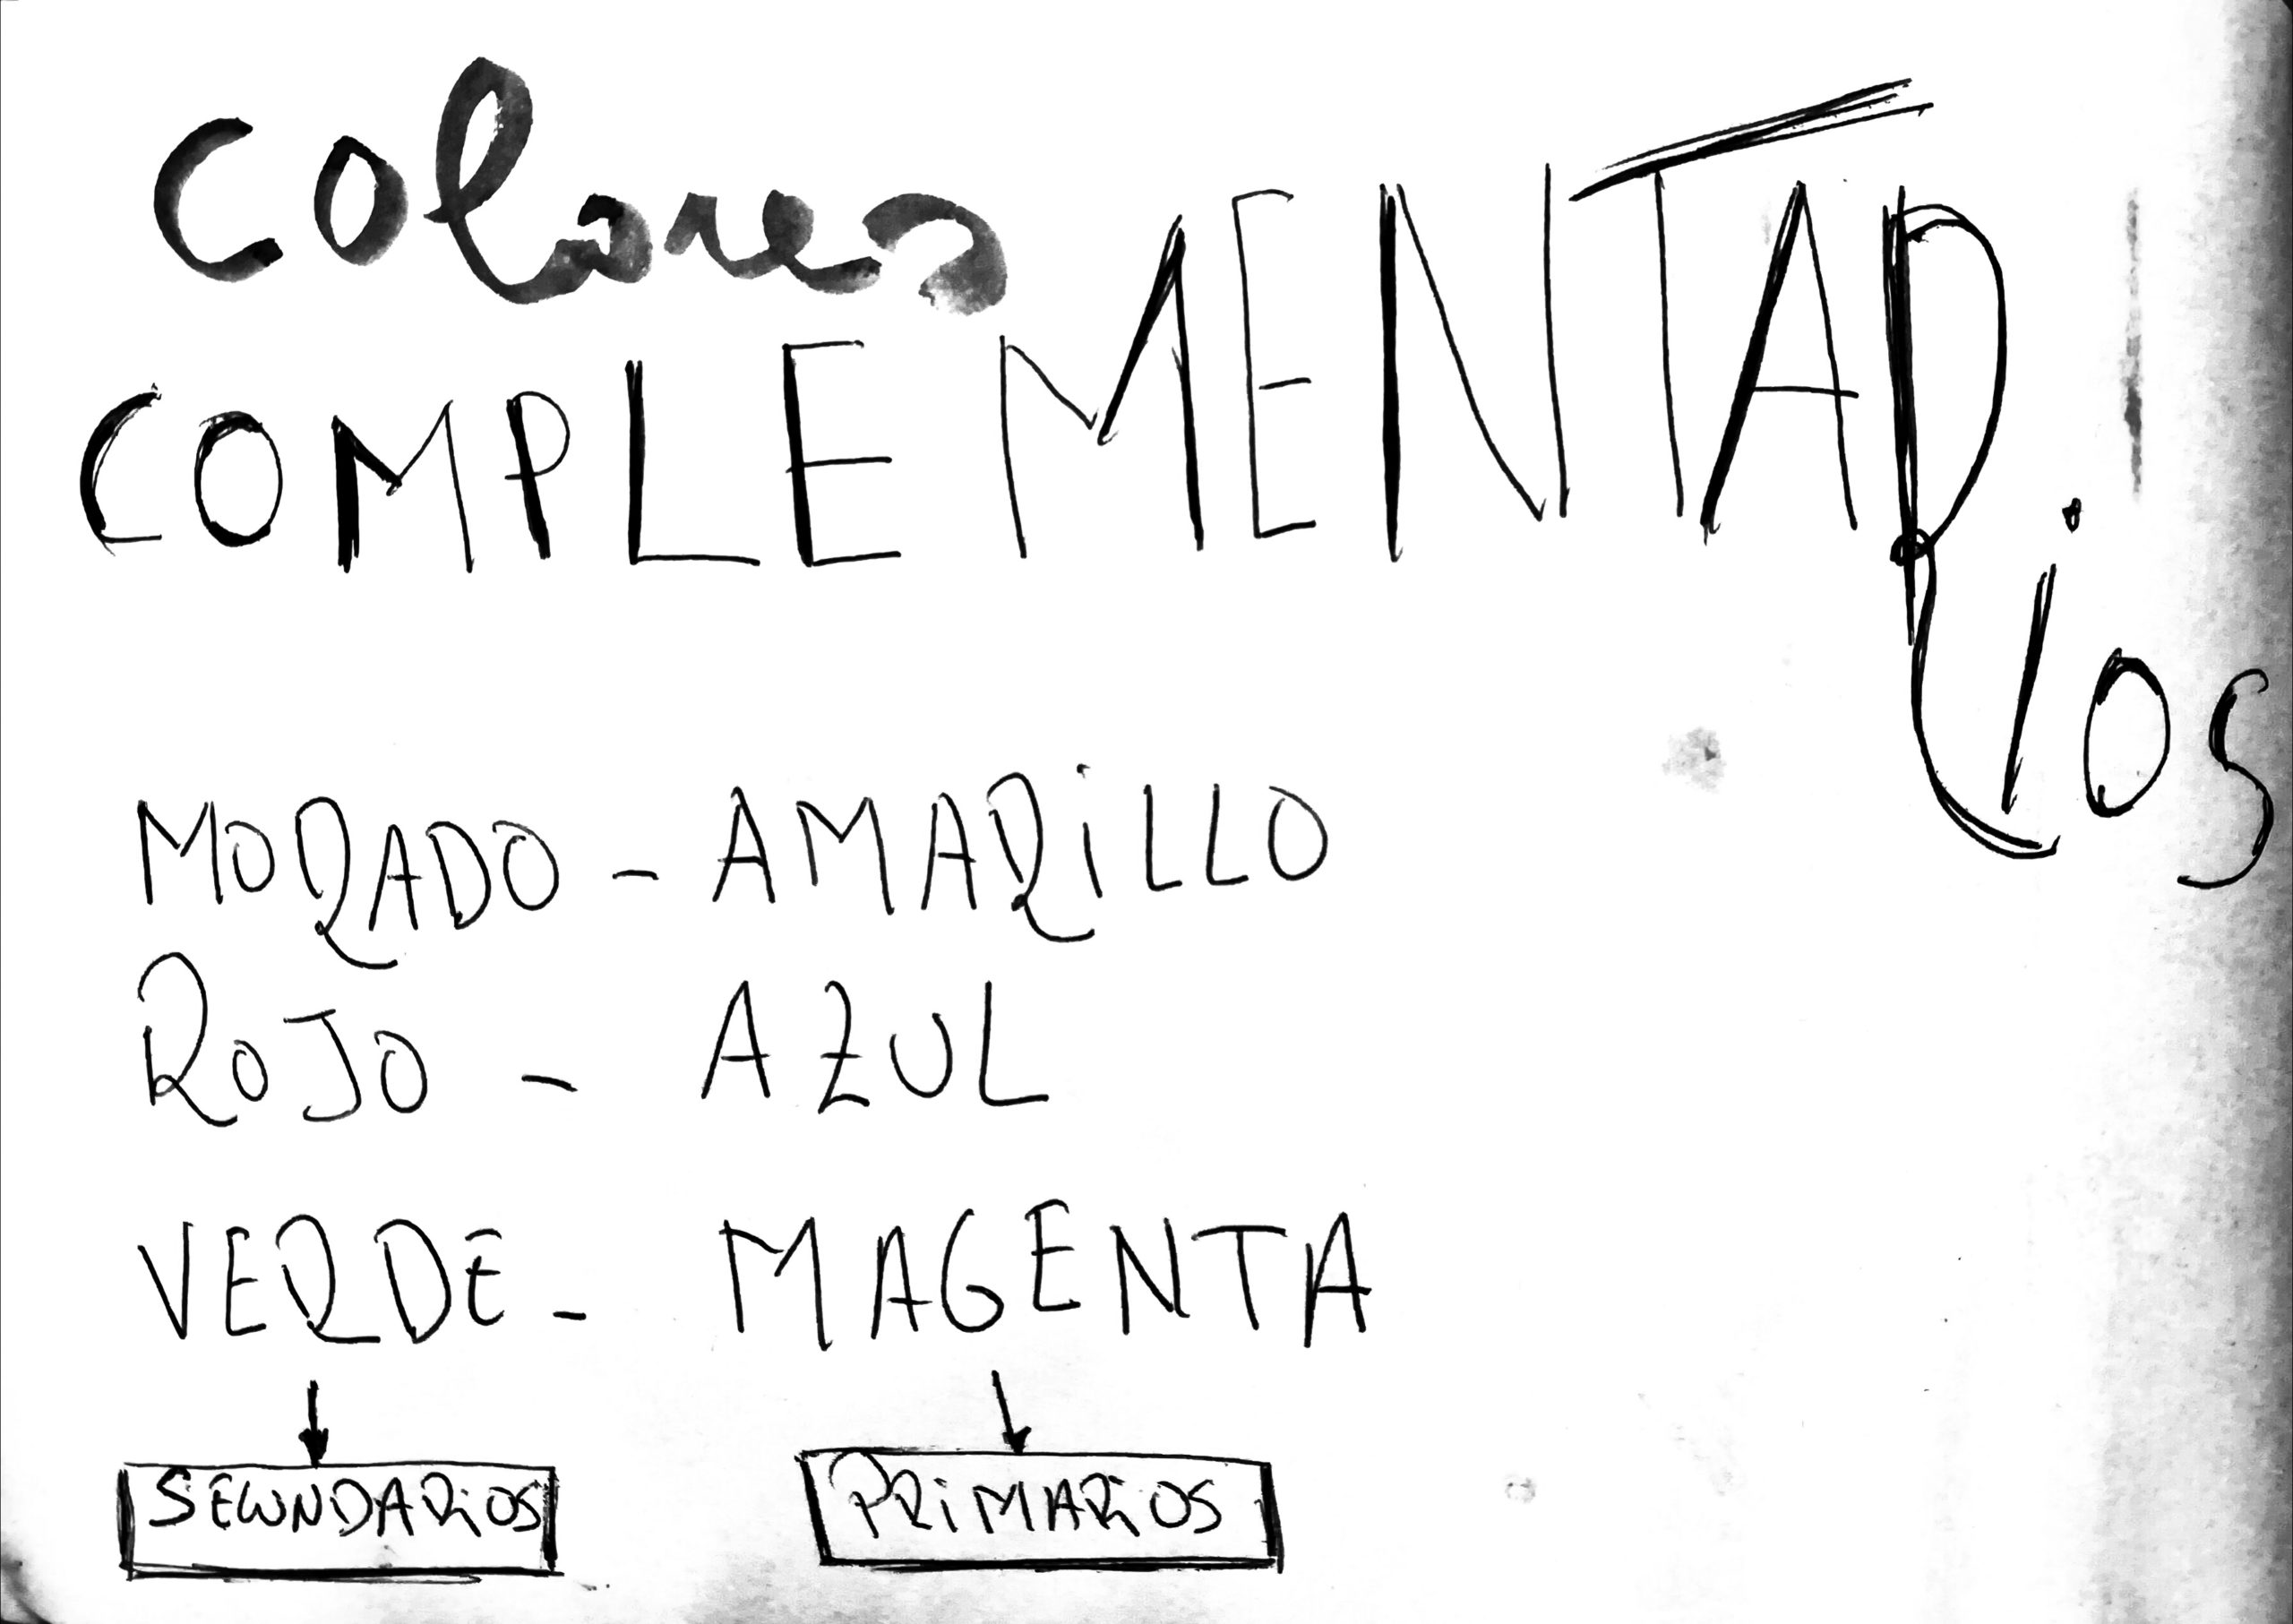 Colores
COMPLEMENTARIOS
MORADO - AMARiLLO
ROJO - AZUL
VERDE - MAGENTA
SECUNDARiOS PRiMARiOS